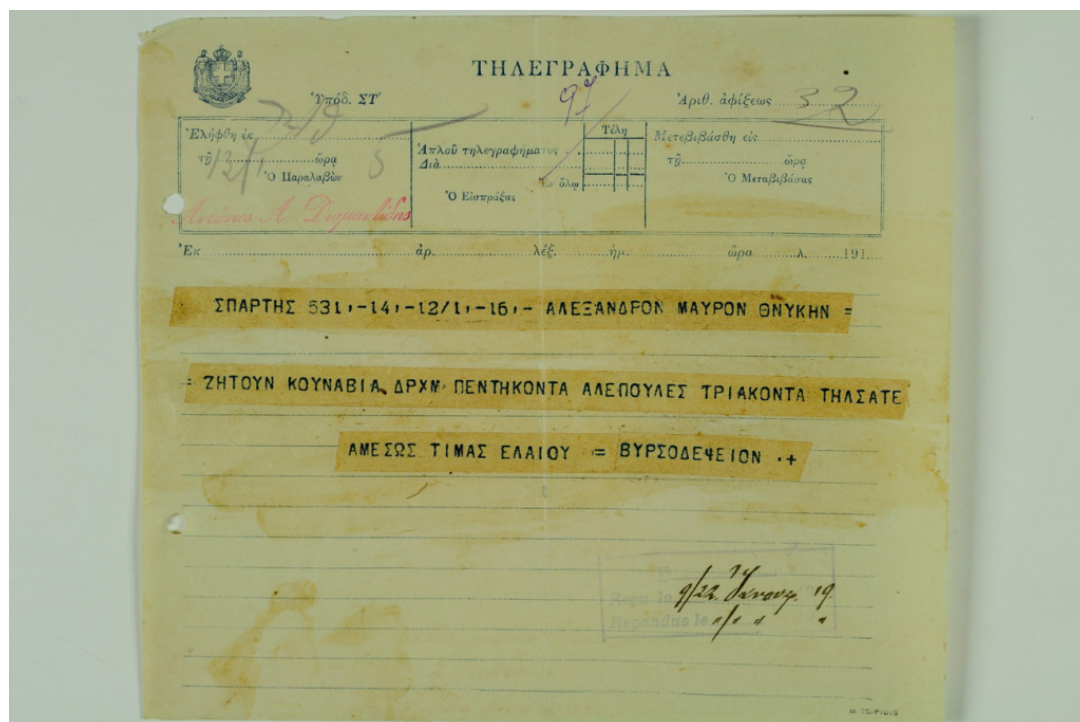 ΤΗΛΕΓΡΑΦΗΜΑ
Ὑπόδ. ΣΤ′
97
Ἀριθ. ἀφίξεως 32
Ἐλήφθη ἐκ
τῇ 12/1 ὥρᾳ 5
Ὁ Παραλαβὼν
Ἀντώνιος Α. Διαμαντίδης
Τέλη
Ἁπλοῦ τηλεγραφήματος
Διὰ
Ἐν ὅλῳ
Ὁ Εἰσπράξας
Μετεβιβάσθη εἰς
τῇ ὥρᾳ
Ὁ Μεταβιβάσας
Ἐκ ἀρ. λέξ. ἡμ. ὥρα λ. 191
ΣΠΑΡΤΗΣ 531,-14,-12/1,-16,- ΑΛΕΞΑΝΔΡΟΝ ΜΑΥΡΟΝ ΘΝΥΚΗΝ =
= ΖΗΤΟΥΝ ΚΟΥΝΑΒΙΑ ΔΡΧΜ ΠΕΝΤΗΚΟΝΤΑ ΑΛΕΠΟΥΛΕΣ ΤΡΙΑΚΟΝΤΑ ΤΗΛΣΑΤΕ
ΑΜΕΣΩΣ ΤΙΜΑΣ ΕΛΑΙΟΥ = ΒΥΡΣΟΔΕΨΕΙΟΝ .+
Reçu le 9/22 Ἰανουαρ. 19
Répondue le